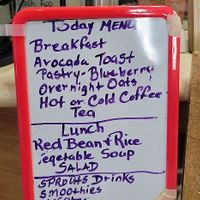 Today MENU
Breakfast
Avocada Toast
Pastry-Blueberry
Overnight Oats
Hot or Cold Coffee
Tea
Lunch
Red Bean & Rice
Vegetable Soup
SALAD
SPROUTS DRINKS
SMOOTHIES